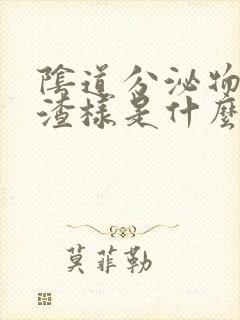 陰道分泌物
渣樣是什麼
莫菲勒